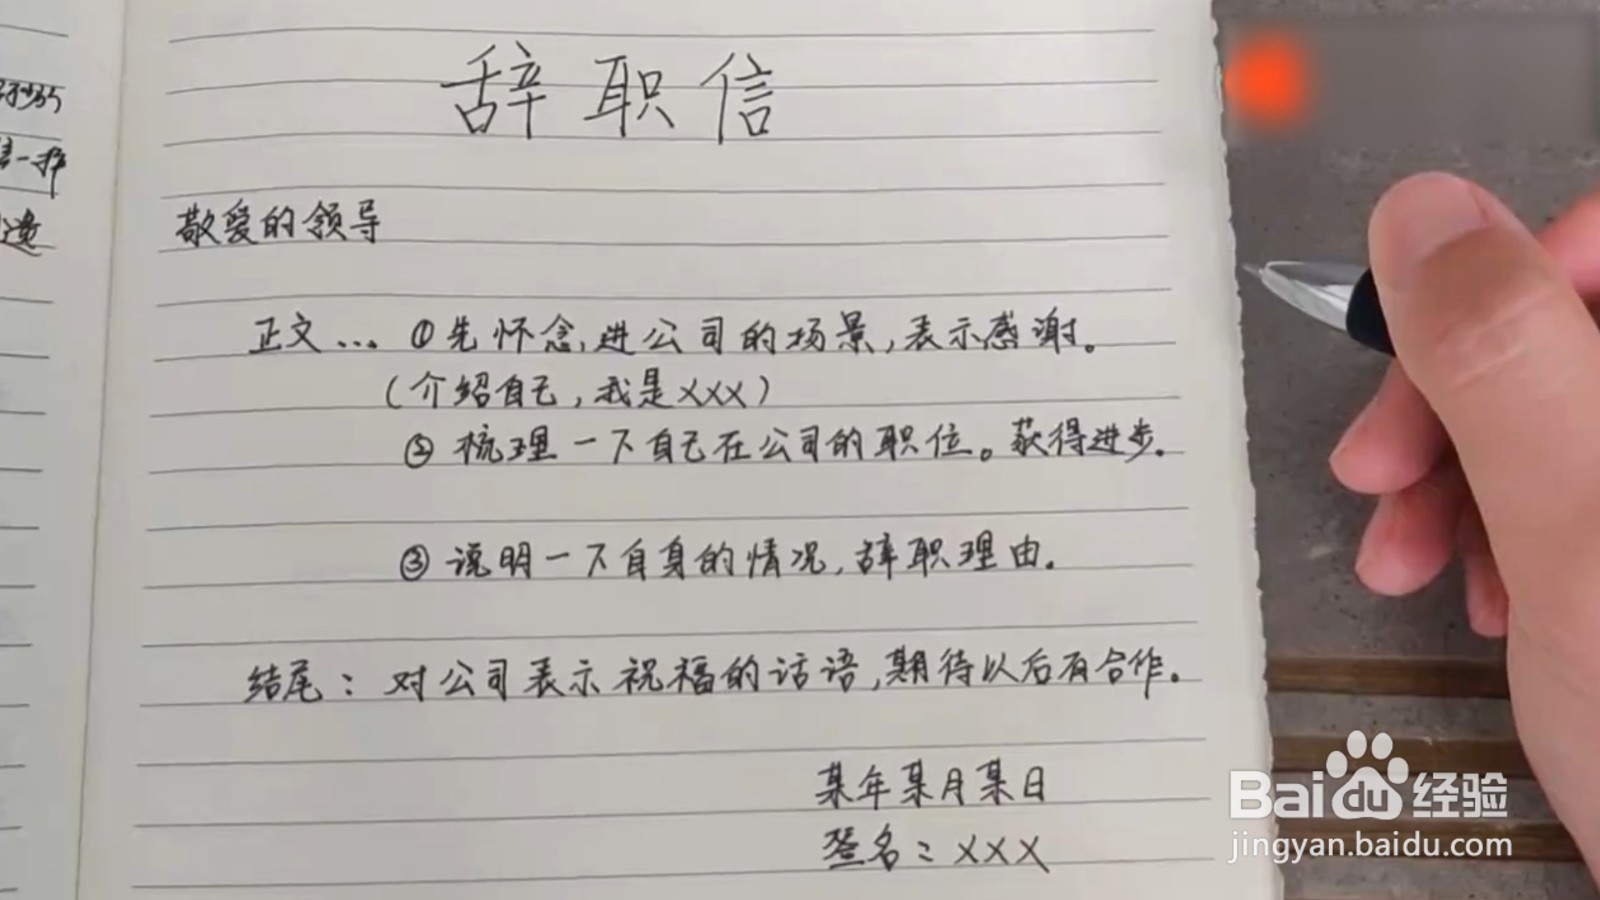 辞职信
敬爱的领导
正文... ①先怀念,进公司的场景,表示感谢。
(介绍自己,我是XXX)
② 梳理一下自己在公司的职位。获得进步.
③ 说明一下自身的情况,辞职理由.
结尾:对公司表示祝福的话语,期待以后有合作。
某年某月某日
签名:XXX
Baidu经验
jingyan.baidu.com